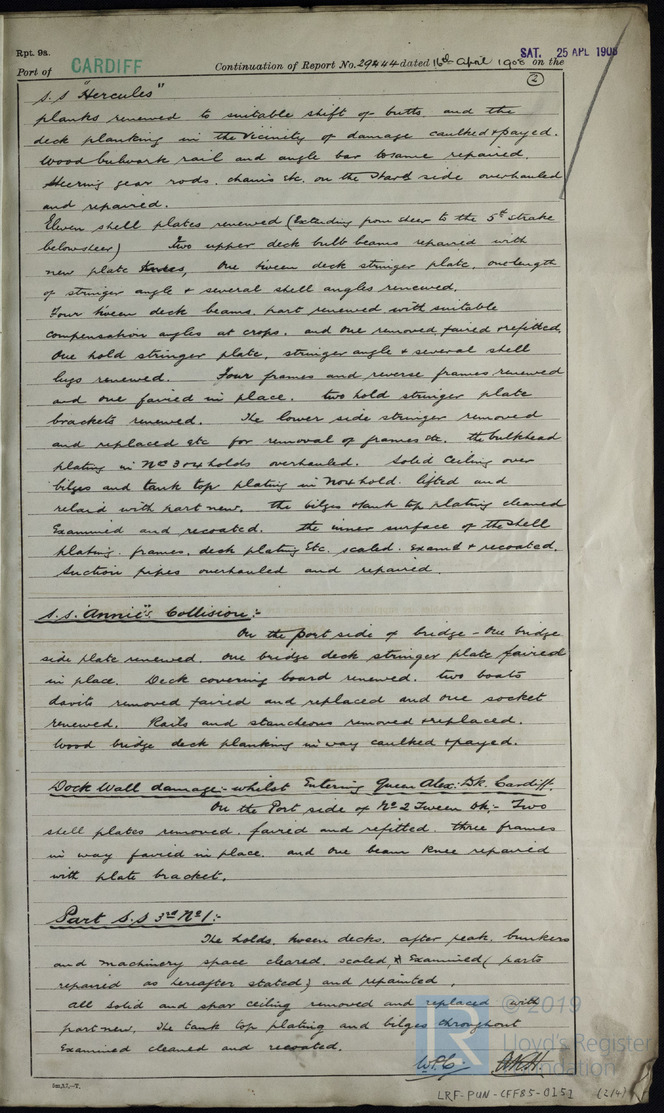 Rpt. 9a.
Port of CARDIFF Continuation of Report No. 29444 dated 16th April 1908 on the
SAT. 25 APL 1908
(2)
S.S "Hercules"
planks renewed to suitable shift of butts and the
deck planking in the vicinity of damage caulked & payed.
Wood bulwark rail and angle bar to same repaired.
Steering gear rods, chains etc. on the Starbd side overhauled
and repaired.
Eleven shell plates renewed (Extending from sheer to the 5th strake
below sheer) Two upper deck bulb beams repaired with
new plate knees, One tween deck stringer plate, one length
of stringer angle & several shell angles renewed.
Four tween deck beams, part renewed with suitable
compensation angles at crops, and one removed faired & refitted.
One hold stringer plate, stringer angle & several shell
lugs renewed. Four frames and reverse frames renewed
and one faired in place. two hold stringer plate
brackets renewed. The lower side stringer removed
and replaced etc for removal of frames etc. the bulkhead
plating in No 3 or 4 holds overhauled. Solid Ceiling over
bilges and tank top plating in No 4 hold lifted and
relaid with part new. the bilges & tank top plating cleaned
Examined and recoated. the inner surface of the shell
plating, frames, deck plating Etc. scaled. examd & recoated.
Suction pipes overhauled and repaired.
S.S. "Annie's" Collision:-
On the port side of bridge - One bridge
side plate renewed. one bridge deck stringer plate faired
in place. Deck covering board renewed. two boats
davits removed faired and replaced and one socket
renewed. Rails and stancheons removed & replaced.
Wood bridge deck planking in way caulked & payed.
Dock Wall damage:- whilst Entering Queen Alex: Dk. Cardiff.
On the Port side of No 2 Tween Dk:- Two
shell plates removed, faired and refitted. three frames
in way faired in place. and One beam knee repaired
with plate bracket.
Part S.S 3rd No 1:-
The holds, tween decks, after peak, bunkers
and machinery space cleared, scaled & Examined (parts
repaired as hereafter stated) and repainted.
all solid and spar ceiling removed and replaced with
part new. The tank top plating and bilges throughout
Examined cleaned and recoated.
© 2019
Lloyd's Register
Foundation
LRF-PUN-CFF85-0151 (2/4)